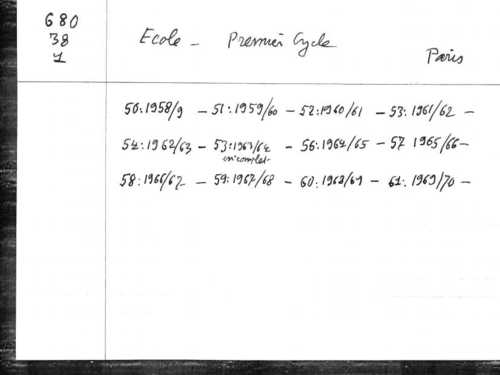 680
38
1
Ecole - Premier Cycle
Paris
50:1958/9 - 51:1959/60 - 52:1960/61 - 53:1961/62 -
54:1962/63 - 53:1963/64 - 56:1964/65 - 57 1965/66 -
incomplet
58:1966/67 - 59:1967/68 - 60:1968/69 - 61:1969/70 -